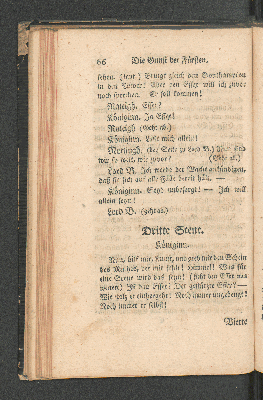 66 Die Gunst der Fürsten.
sehen. (laut) Bringt gleich den Southampton
in den Tower! Aber den Essex will ich zuvor
noch sprechen. Er soll kommen!
Raleigh. Essex?
Königinn. Ja Essex!
Raleigh (geht ab.)
Königinn. Laßt mich allein!
Nottingh. (bey Seite zu Lord B.) sind
wir so weit, wie zuvor? (Geht ab.)
Lord B. Ich werde der Wache ankündigen,
daß sie sich auf alle Fälle bereit hält, —
Königinn. Seyd unbesorgt! — Ich will
allein seyn!
Lord B. (geht ab.)
Dritte Scene.
Königinn.
Nun, hilf mir, Kunst, und gieb mir den Schein
des Muthes, der mir fehlt! Himmel! Was für
eine Scene wird das seyn! (sieht den Essex von
weitem) Ist das Essex? Der gestürzte Essex? —
Wie stolz er einhergeht! Noch immer ungebeugt!
Noch immer er selbst!
Vierte